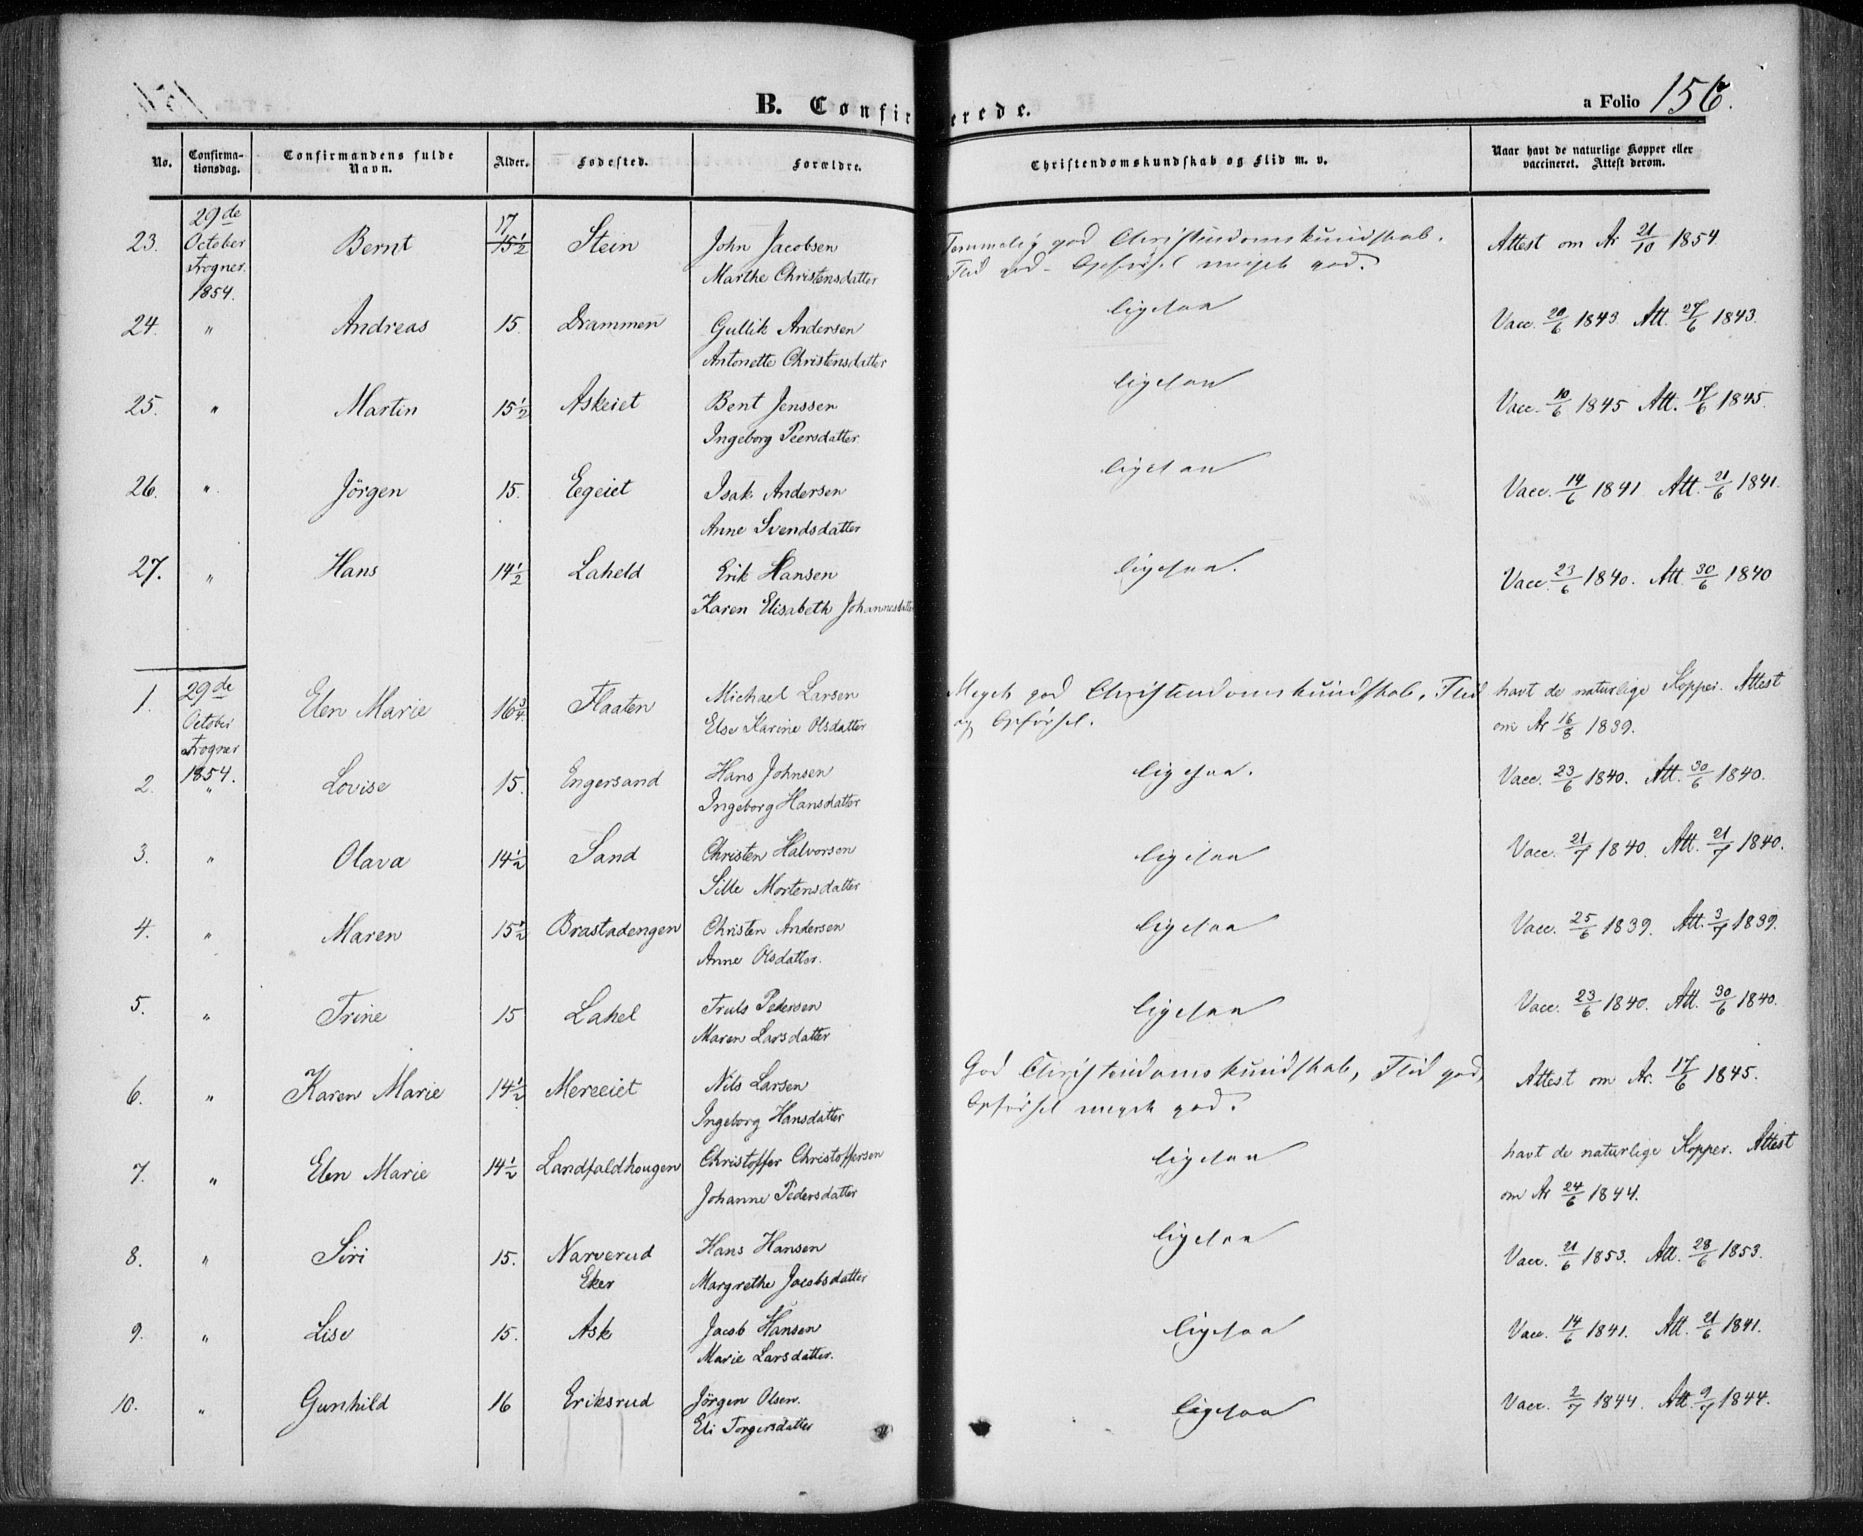 B. Confirmerede.
a Folio 156.
No. Confirmationsdag. Confirmandens fulde Navn. Alder. Fødested. Forældre. Christendomskundskab og Flid m. v. Naar havt de naturlige Kopper eller vaccineret. Attest derom.
23. 29de October Frogner 1854. Bernt 17 15½ Stein John Jacobsen Temmelig god Christendomskundskab. Attest om Ar 21/10 1854.
Marthe Christensdatter Flid god. Opførsel meget god.
24. " Andreas 15. Drammen Gullik Andersen ligesaa Vacc. 20/6 1843 Att. 27/6 1843.
Antonette Christensdatter
25. " Martin 15½ Askeiet Bent Jenssen ligesaa Vacc. 10/6 1845 Att. 17/6 1845.
Ingeborg Peersdatter
26. " Jörgen 15. Egeiet Isak Andersen ligesaa Vacc. 14/6 1841 Att. 21/6 1841.
Anne Svendsdatter
27. " Hans 14½ Laheld Erik Hansen ligesaa. Vacc. 23/6 1840. Att. 30/6 1840
Karen Elisabeth Johannesdatter
1. 29de October Frogner 1854. Elen Marie 16¾ Flaaten Michael Larsen Meget god Christendomskundskab, Flid havt de naturlige Kopper. Attest
Else Karine Olsdatter og Opførsel. om Ar 16/8 1839.
2. " Lovise 15. Engersand Hans Johnsen ligesaa. Vacc. 23/6 1840. Att. 30/6 1840.
Ingeborg Hansdatter
3. " Olava 14½ Sand Christen Halvorsen ligesaa Vacc. 21/7 1840. Att. 21/7 1840.
Sille Mortensdatter
4. " Maren 15½ Brastadengen Christen Andersen ligesaa Vacc. 25/6 1839. Att. 3/7 1839.
Anne Olsdatter.
5. " Trine 15 Lahel Truls Pedersen ligesaa Vacc. 23/6 1840. Att. 30/6 1840.
Maren Larsdatter
6. " Karen Marie 14½ Mereeiet Nils Larsen God Christendomskundskab, Flid god, Attest om Ar. 17/6 1845.
Ingeborg Hansdatter Opførsel meget god.
7. " Elen Marie 14½ Landfaldhougen Christoffer Christoffersen ligesaa havt de naturlige Kopper. Attest
Johanne Pedersdatter om Ar 24/6 1844.
8. " Siri 15. Narverud Hans Hansen ligesaa Vacc. 21/6 1853. Att. 28/6 1853.
Eker Margrethe Jacobsdatter
9. " Lise 15. Ask Jacob Hansen ligesaa Vacc. 14/6 1841. Att. 21/6 1841.
Marie Larsdatter.
10. " Gunhild 16 Eriksrud Jörgen Olsen. ligesaa Vacc. 2/7 1844. Att. 9/7 1844.
Eli Torgersdatter